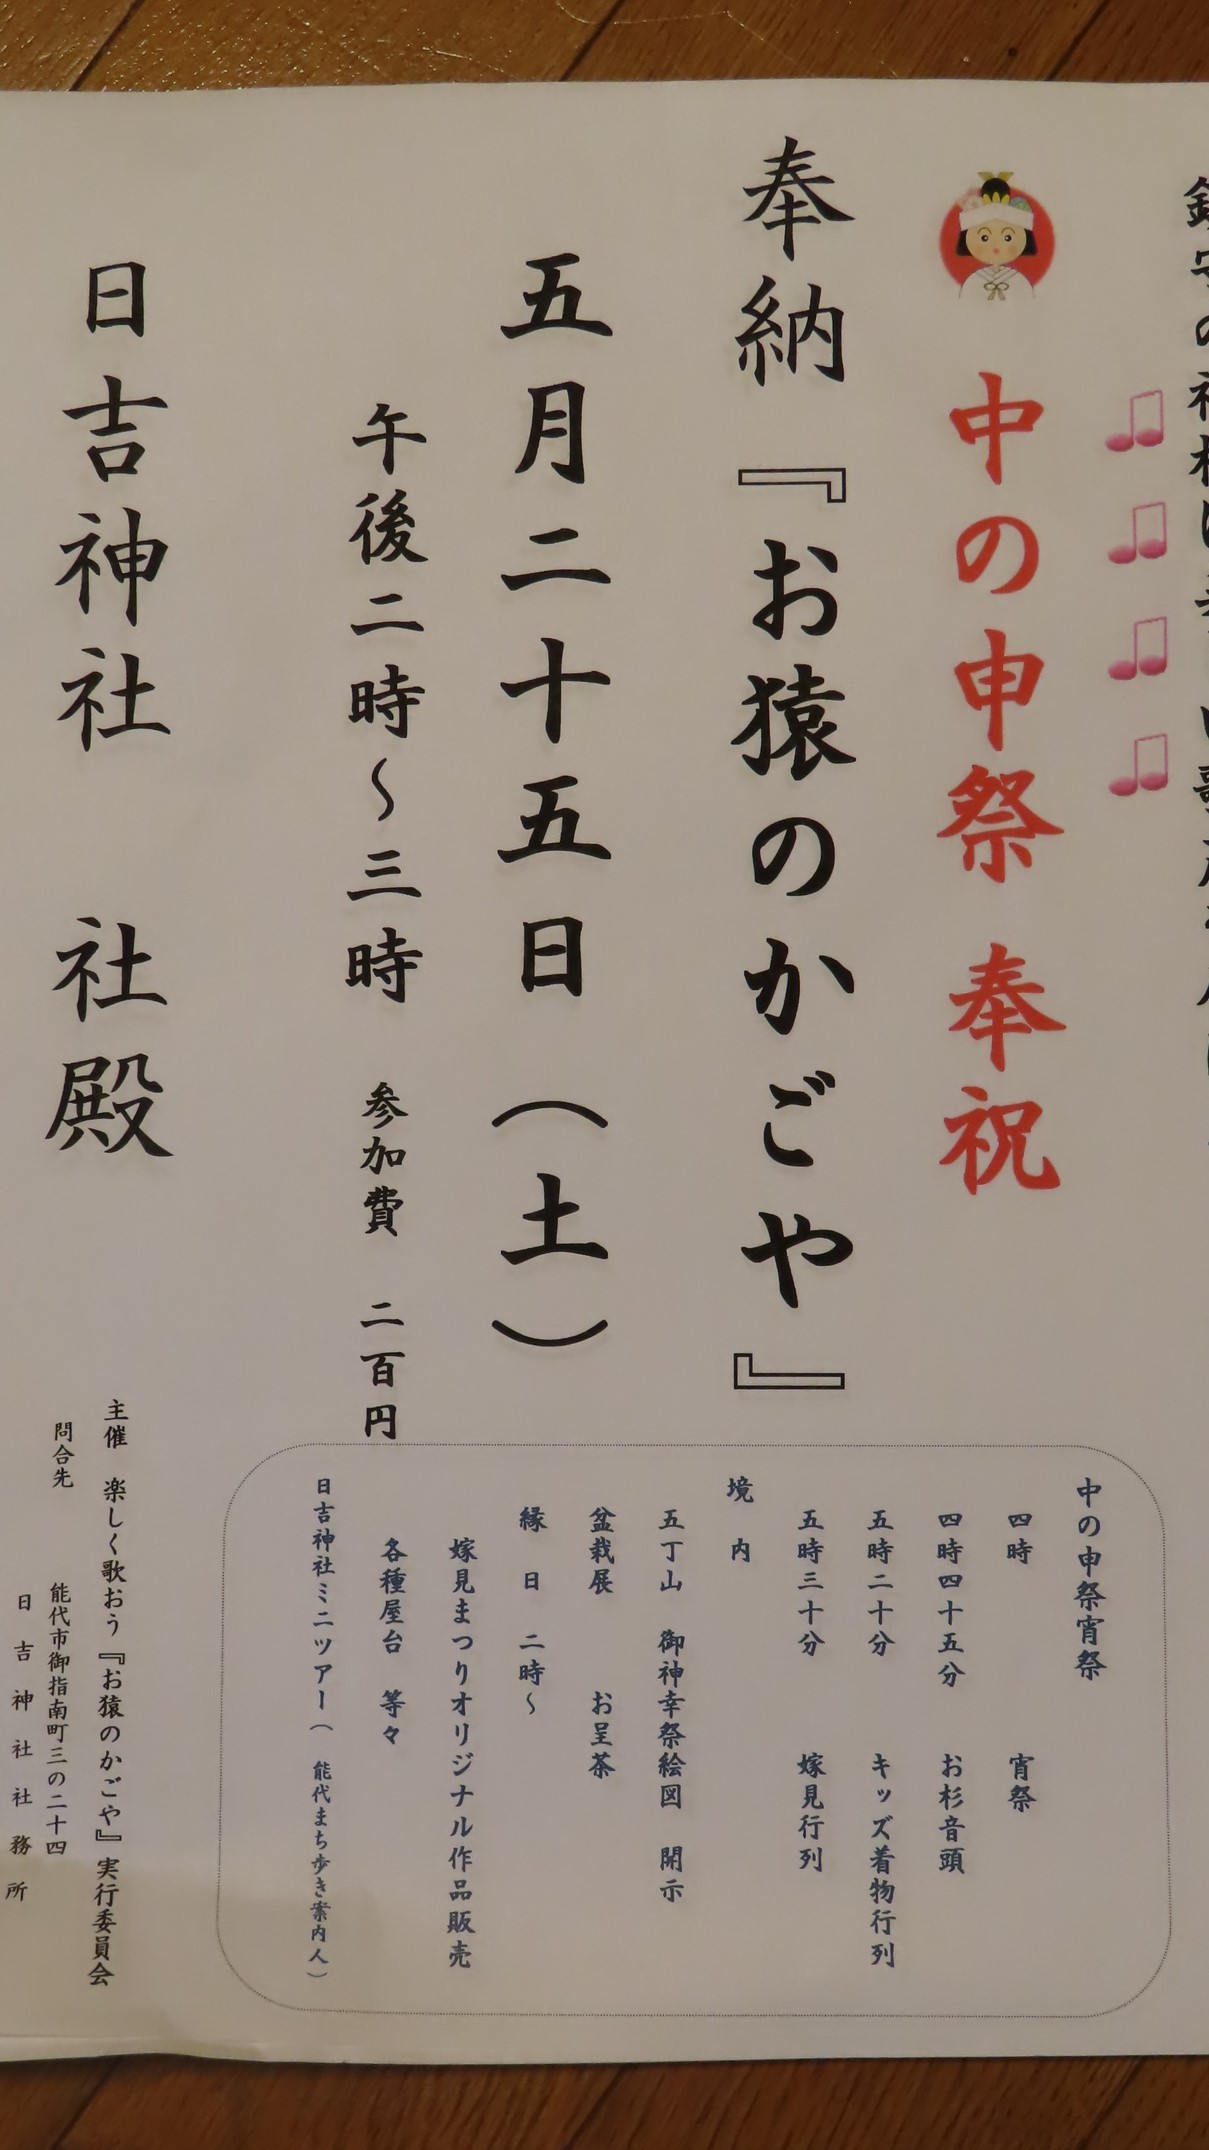 中の申祭 奉祝
奉納『お猿のかごや』
五月二十五日（土）
午後二時～三時 参加費 二百円
日吉神社 社殿
中の申祭宵祭
四時 宵祭
四時四十五分 お杉音頭
五時二十分 キッズ着物行列
五時三十分 嫁見行列
境内
五丁山 御神幸祭絵図 開示
盆栽展 お呈茶
縁日 二時～
嫁見まつりオリジナル作品販売
各種屋台 等々
日吉神社ミニツアー（ 能代まち歩き案内人）
主催 楽しく歌おう『お猿のかごや』実行委員会
問合先 能代市御指南町三の二十四
日吉神社社務所